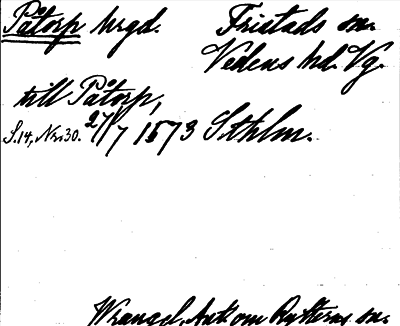 Påtorp hrgd. Fristads sn.
Vedens hd. Vg.
till Påtorp,
S.14, Nr.30. 27/7 1573 Sthlm.
Wrangel, Ant. om Rytterns sn.